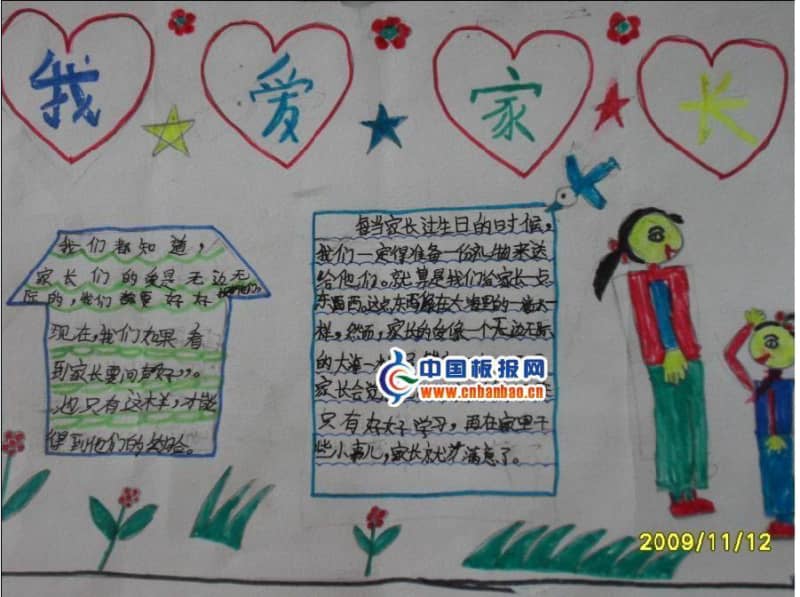 我 爱 家 长
我们都知道，
家长们的爱是无边无
际的，我们
现在，我们如果看
到家长要问声好
也只有这样，才能
得到他们的
每当家长过生日的日时候，
我们一定得准备一份礼物来送
给他们。就算是我们给家长一点
东西。这点东西
样，然而，家长的爱像一个无边无际
的大海一
家长会觉
只有好好学习，再在家里干
些小事儿，家长就满意了。
中国板报网
www.cnbanbao.cn
2009/11/12